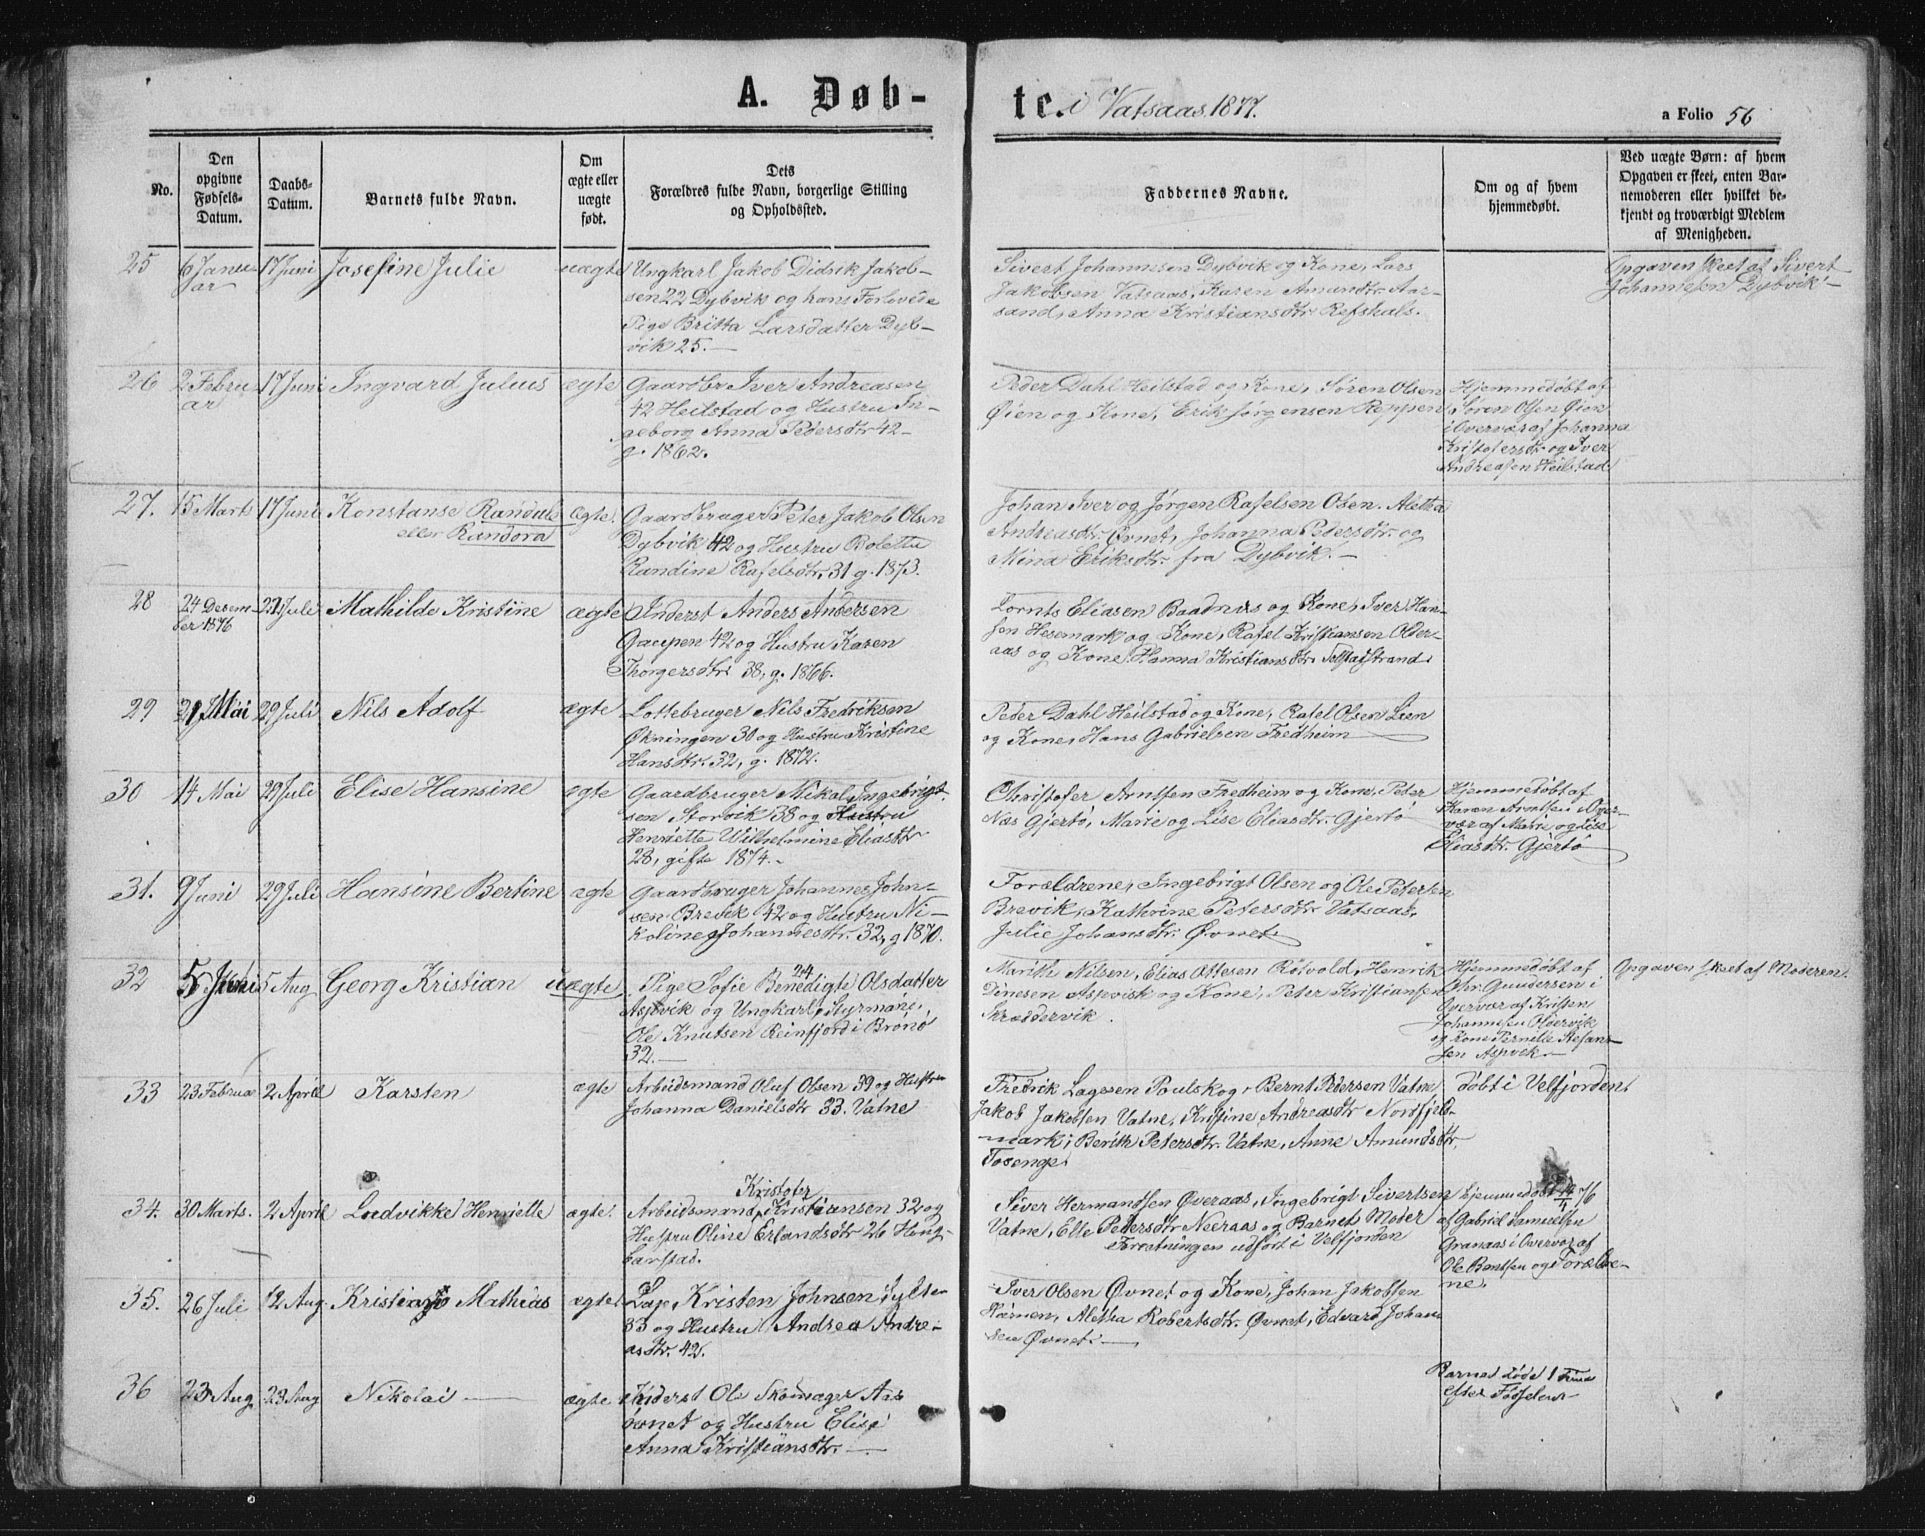 A. Døb-
te. i Vatsaas 1877.
a Folio 56
No.
Den
opgivne
Fødsels-
Datum.
Daabs-
Datum.
Barnets fulde Navn.
Om
ægte eller
uægte
født.
Dets
Forældres fulde Navn, borgerlige Stilling
og Opholdssted.
Faddernes Navne.
Om og af hvem
hjemmedøbt.
Ved uægte Børn: af hvem
Opgaven er skeet, enten Bar-
nemoderen eller hvilket be-
kjendt og troværdigt Medlem
af Menigheden.
25
6 Janu-
ar
17 Juni
Josefine Julie
uægte
Ungkarl Jakob Didrik Jakob-
sen 22 Dybvik og hans Forlovede
Pige Britta Larsdatter Dyb-
vik 25.
Sivert Johannesen Dybvik og Kone, Lars
Jakobsen Vatsaas, Karen Amundsdtr. Aar-
sand, Anna Kristiansdtr. Refshals.
Opgaven skeet af Sivert
Johannesen Dybvik
26
2 Febru
ar
17 Juni
Ingvard Julius
ægte
Gaardbr Iver Andreasen
42 Heilstad og Hustru In-
geborg Anna Pedersdtr 42
g. 1862.
Peder Dahl Heilstad og Kone, Søren Olsen
Øien og Kone, Erik Jørgensen Reppen
Hjemmedøbt af
Søren Olsen Øien
i Overvær af Johanna
Kristofersdtr og Iver
Andreasen Heilstad
27.
15 Marts
17 Juni
Konstanse Randule
eller Randora
ægte.
Gaardbruger Peter Jakob Olsen
Dybvik 42 og Hustru Bolette
Randine Rafelsdtr. 31 g. 1873.
Johan Iver og Jørgen Rafelsen Olsen. Aletha
Andreasdtr. Øvnet, Johanna Pedersdtr. og
Mina Eriksdtr. fra Dybvik.
28
24 Desem-
ber 1876
22 Juli
Mathilde Kristine
ægte
Inderst Anders Andersen
Gaupen 42 og Hustru Karen
Thorgersdtr. 38, g. 1866.
Lornts Eliasen Baadnes og Kone, Iver Han-
sen Hesemark og Kone, Rafel Kristiansen Older-
aas og Kone, Hanna Kristiansdtr. Selstadstrand.
29
21 Mai
29 Juli
Nils Adolf
ægte
Lottebruger Nils Fredriksen
Økningen 30 og Hustru Kristine
Hansdtr. 32, g. 1872.
Peder Dahl Heilstad og Kone, Rafel Olsen Lien
og Kone, Hans Gabrielsen Fredheim
30
14 Mai
29 Juli
Elise Hansine
ægte
Gaardbruger Nikolai Ingebrigt-
sen Storvik 38 og Hustru
Henriette Wilhelmine Eliasdtr
28, gifte 1874.
Christofer Arntsen Fredheim og Kone, Peter
Næs Gjertø, Marie og Lise Eliasdtr. Gjertø
Hjemmedøbt af
Karen Arntsen i Over-
vær af Marie og Lise
Eliasdtr. Gjertø
31.
9 Juni
29 Juli
Hansine Bertine
ægte
Gaardbruger Johannes John-
sen Brevik 42 og Hustru Ni-
koline Johannesdtr. 32, g 1870.
Forældrene, Ingebrigt Olsen og Ole Petersen
Brevik, Kathrine Petersdtr. Vatsaas,
Julie Johansdtr. Øvnet.
32
5 Juni
5 Aug
Georg Kristian
uægte
Pige Sofie Benedigte Olsdatter 24
Aspvik og Ungkarl, Styrmand,
Ole Knutsen Reinfjord i Brønø
32.
Marith Nilsen, Elias Ottesen Røtvold, Henrik
Dinesen Aspvik og Kone, Peter Kristiansen
Skræddervik.
Hjemmedøbt af
Chr. Gundersen i
Overvær af Kristen
Johannesen Olvervik
og Kone Pernille Stefan-
sen Aspvik
Opgaven skeet af Moderen.
33
23 Februar
2 April
Karsten
ægte
Arbeidsmand Oluf Olsen 39 og Hustru
Johanna Danielsdtr 33. Vatne
Fredrik Lagesen Poulskog, Bernt Pedersen Vatne
Jakob Jakobsen Vatne, Kristine Andreasdtr Nordfjeld-
mark, Berith Petersdtr. Vatne, Anne Amundsdtr
Tosenge.
døbt i Velfjorden.
34.
30 Marts.
2 April
Ludvikke Henriette
ægte.
Kristofer
Arbeidsmand, Kristiansen 32 og
Hustru Oline Erlandsdtr 26 Haug-
barstad.
Siver Hermandsen Øveraas, Ingebrigt Sivertsen
Vatne, Elle Petersdtr Neeraas og Barnet Moder
Forretningen udført i Velfjorden
Hjemmedøbt 16/4 76
af Gabriel Samuelsen
Granaas i Overvær af
Ole Bentsen og Forældre-
ne.
35.
26 Juli
12 Aug.
Kristian Mathias
ægte.
Lap Kristen Johnsen Sylte
33 og Hustru Andrea Andre-
asdtr. 42.
Iver Olsen Øvnet og Kone, Johan Jakobsen
Hamen, Aletha Robertsdtr. Øvnet, Edvard Johan
sen Øvnet.
36
23 Aug.
23 Aug
Nikolai
ægte
Inderst Ole Skomager Aas
Øvnet og Hustru Elise
Anna Kristiansdtr.
Barnet døde 1 Time
efter Fødselen